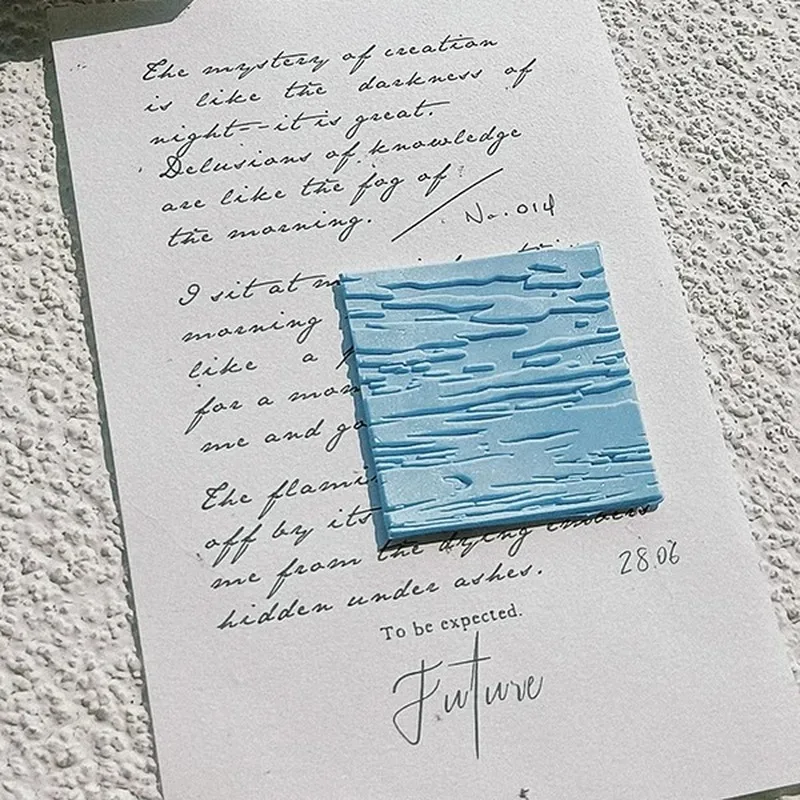 The mystery of creation
is like the darkness of
night--it is great.
Delusions of knowledge
are like the fog of
the morning.
No. 014
I sit at
morning
like a
for a
me and
The
off by its
me from the drying embers
hidden under ashes.
28.06
To be expected.
Future